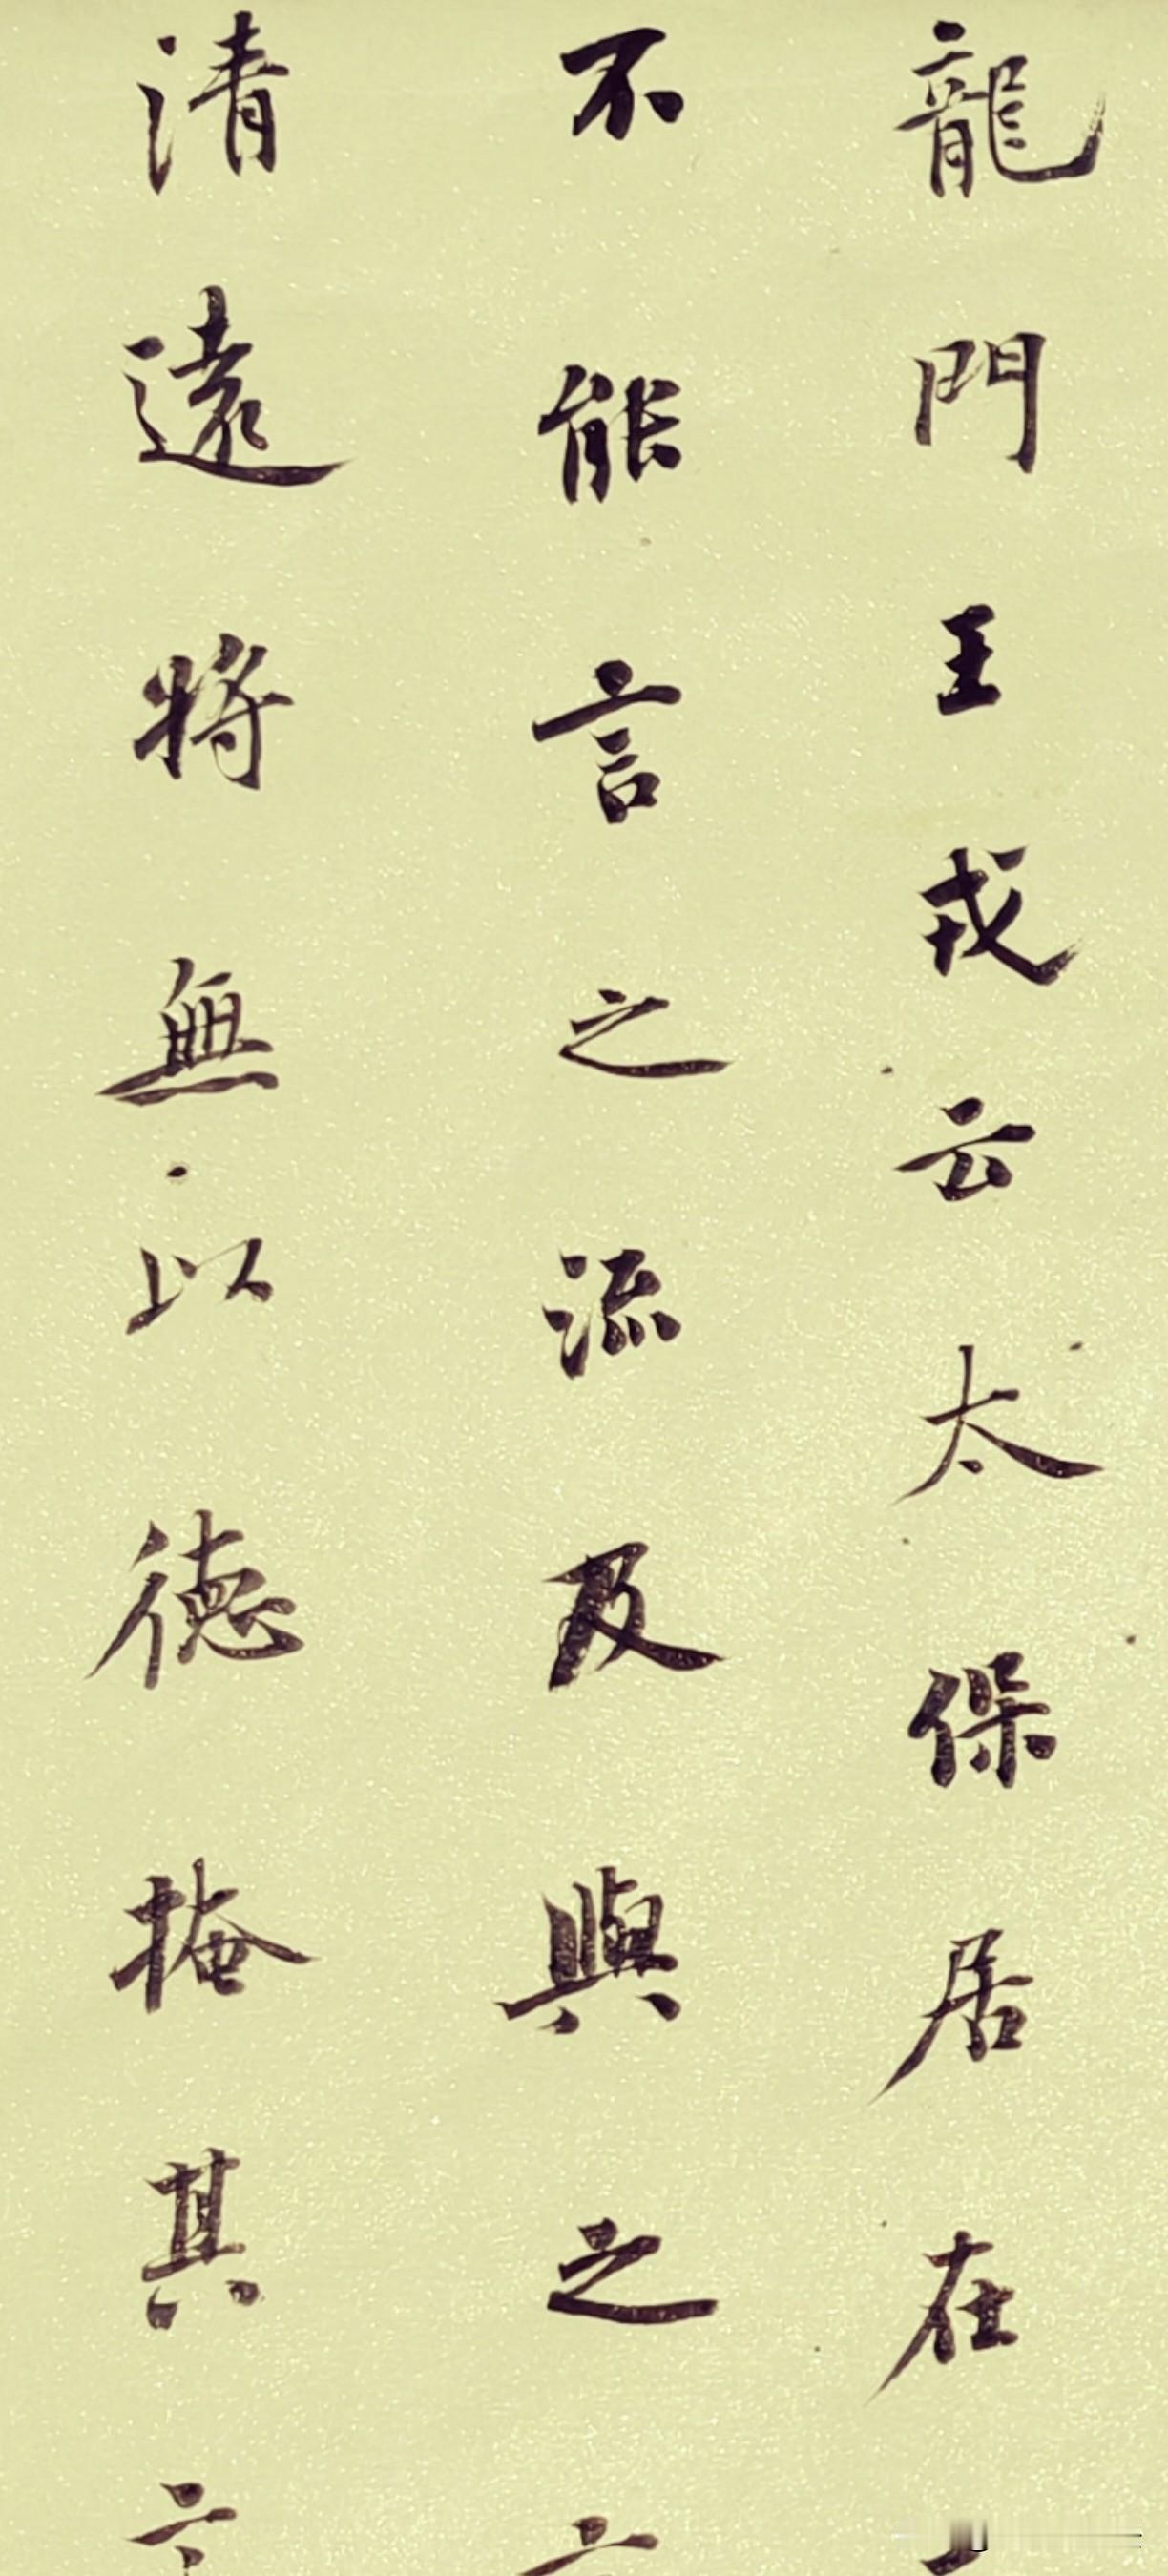 龍門王戎云太保居在
不能言之流及與之
清遠將無以德掩其